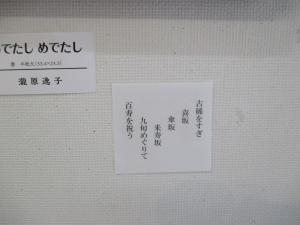 めでたし めでたし
瀧原逸子
古稀をすぎ
喜坂
傘坂
米寿坂
九旬めぐりて
百寿を祝う